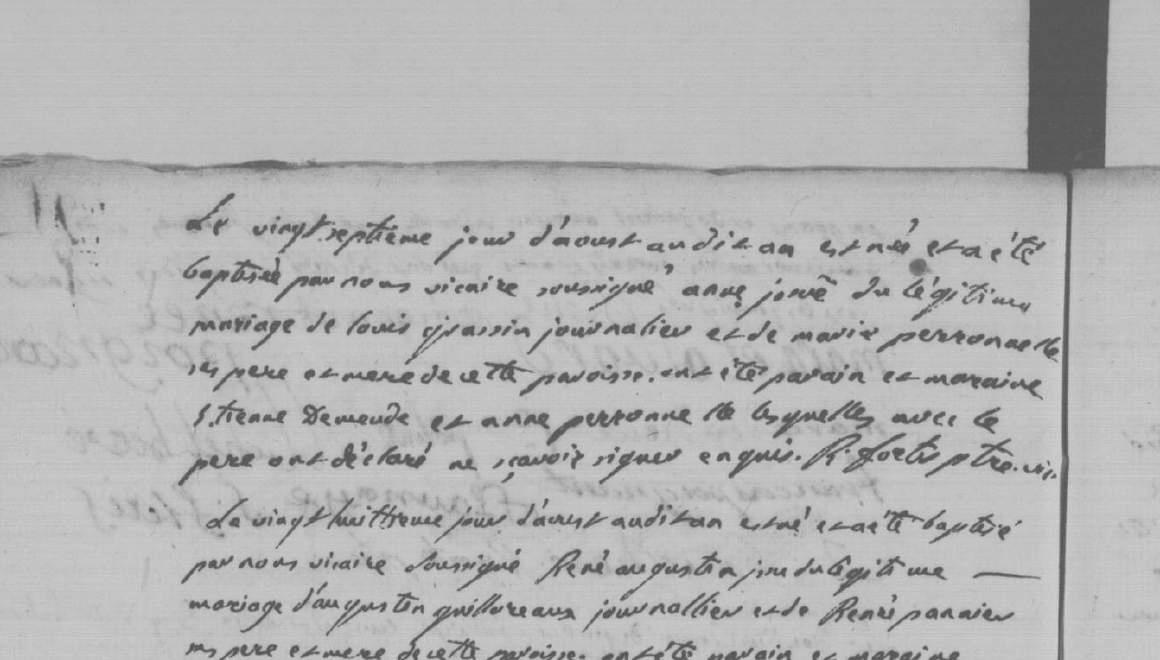 Le vingt septiême jour d'aoust audit an est né et a été
baptisée par nous vicaire soussigné anne josue du légitime
mariage de louis grassin journalier et de marie perronnelle
ses pere et mere de cette paroisse. ont été parain et maraine
Etienne Demeude et anne perronnelle lesquelles avec le
pere ont déclaré ne sçavoir signer enquis. R. fortis ptre. vic.
Le vingt huittieme jour d'aoust audit an est né et a été baptisé
par nous vicaire Soussigné René augustin issu du legitime
mariage d'augustin guillureaux journallier et de Renée pannier
ses pere et mere de cette paroisse. ont été parain et maraine